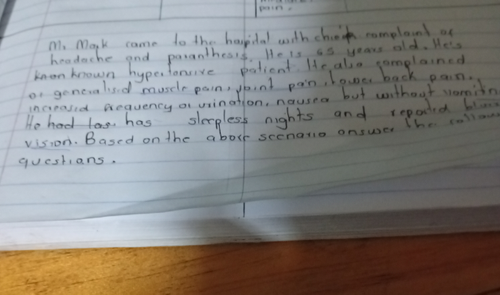 pain.
Mr Mark came to the hospital with chief complaint of
headache and paranthesis. He is 65 years old. He's
known hypertensive patient. He also complained
of generalised muscle pain, joint pain, lower back pain,
increased frequency of urination, nausea but without
He had has sleepless nights and reported
vision. Based on the above scenario answer the
questions.